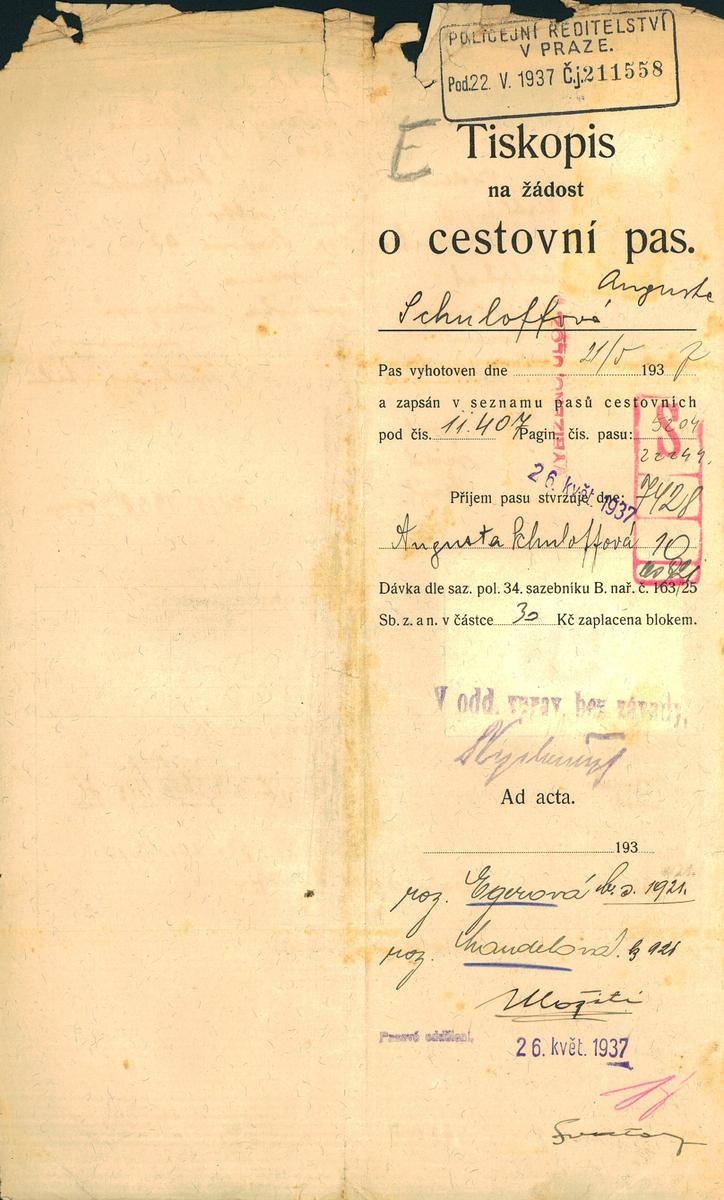 POLICEJNÍ ŘEDITELSTVÍ
V PRAZE.
Pod. 22. V. 1937 Č.j. 211558
E
Tiskopis
na žádost
o cestovní pas.
Auguste
Schuloffová
Pas vyhotoven dne 21/5 193 7
a zapsán v seznamu pasů cestovních
pod čís. 11.407 Pagin. čís. pasu: 5204
22244.
S
26. květ. 1937
Příjem pasu stvrzuje dne: 7428
Augusta Schuloffová 10
Dávka dle saz. pol. 34. sazebníku B. nař. č. 163/25
Sb. z. a n. v částce 30 Kč zaplacena blokem.
V odd. zprav. bez závady.
Ad acta.
193
roz. Egerová 1921.
roz. Mandelová. 921
Uložiti
Pasové oddělení.
26. květ. 1937